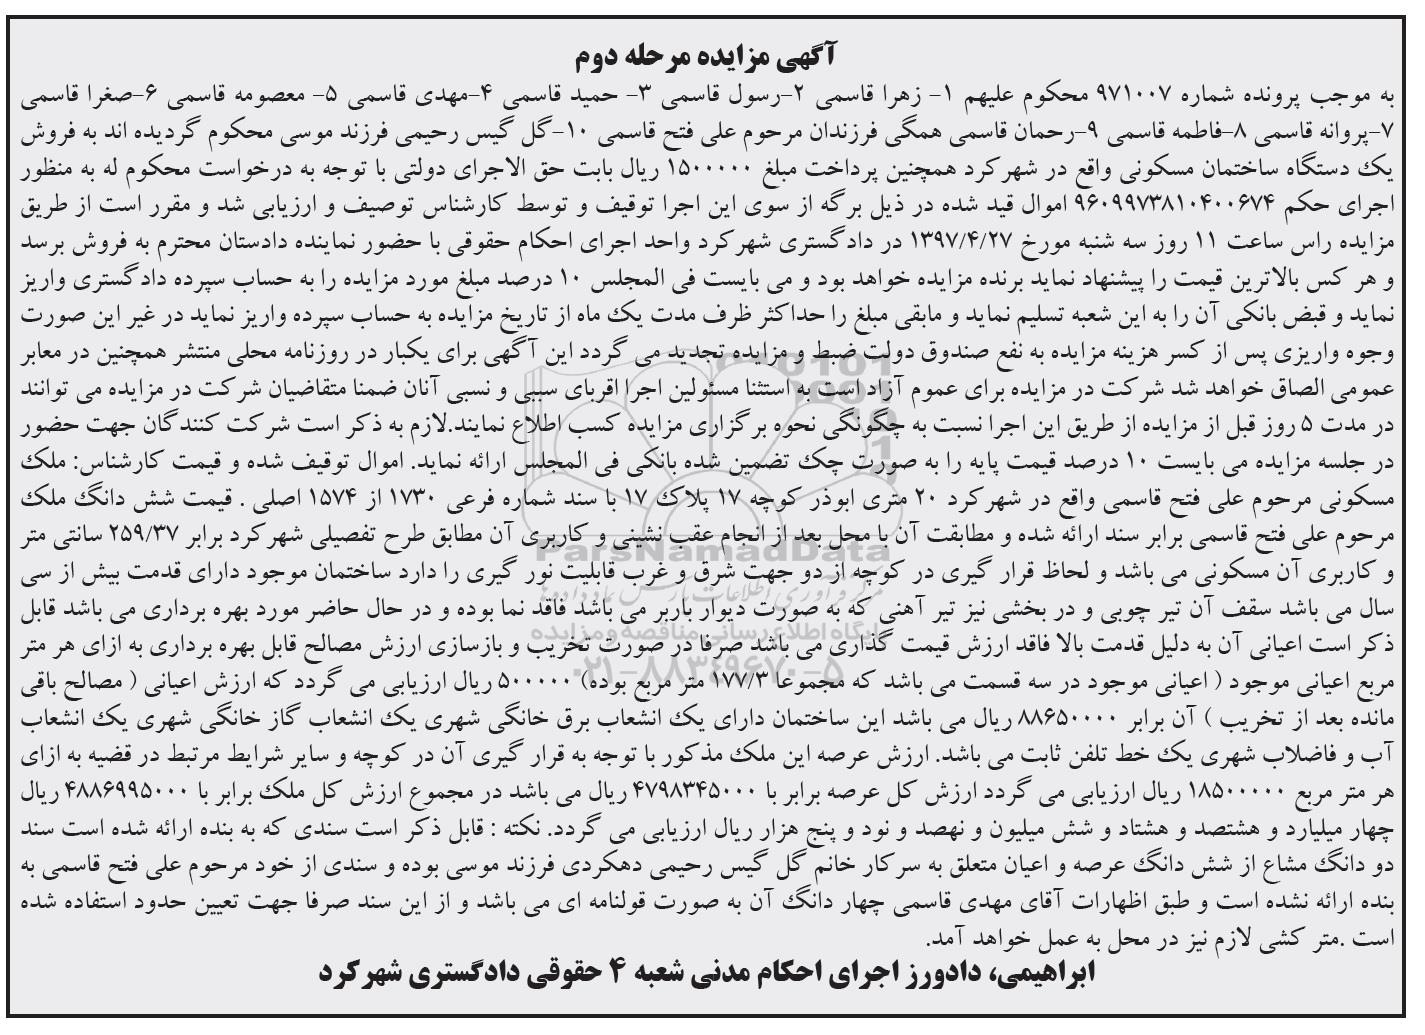 آگهی مزایده مرحله دوم
به موجب پرونده شماره ۹۷۱۰۰۷ محکوم علیهم ۱- زهرا قاسمی ۲-رسول قاسمی ۳- حمید قاسمی ۴-مهدی قاسمی ۵- معصومه قاسمی ۶-صغرا قاسمی
۷-پروانه قاسمی ۸-فاطمه قاسمی ۹-رحمان قاسمی همگی فرزندان مرحوم علی فتح قاسمی ۱۰-گل گیس رحیمی فرزند موسی محکوم گردیده اند به فروش
یک دستگاه ساختمان مسکونی واقع در شهرکرد همچنین پرداخت مبلغ ۱۵۰۰۰۰۰ ریال بابت حق الاجرای دولتی با توجه به درخواست محکوم له به منظور
اجرای حکم ۹۶۰۹۹۷۳۸۱۰۴۰۰۶۷۴ اموال قید شده در ذیل برگه از سوی این اجرا توقیف و توسط کارشناس توصیف و ارزیابی شد و مقرر است از طریق
مزایده راس ساعت ۱۱ روز سه شنبه مورخ ۱۳۹۷/۴/۲۷ در دادگستری شهرکرد واحد اجرای احکام حقوقی با حضور نماینده دادستان محترم به فروش برسد
و هر کس بالاترین قیمت را پیشنهاد نماید برنده مزایده خواهد بود و می بایست فی المجلس ۱۰ درصد مبلغ مورد مزایده را به حساب سپرده دادگستری واریز
نماید و قبض بانکی آن را به این شعبه تسلیم نماید و مابقی مبلغ را حداکثر ظرف مدت یک ماه از تاریخ مزایده به حساب سپرده واریز نماید در غیر این صورت
وجوه واریزی پس از کسر هزینه مزایده به نفع صندوق دولت ضبط و مزایده تجدید می گردد این آگهی برای یکبار در روزنامه محلی منتشر همچنین در معابر
عمومی الصاق خواهد شد شرکت در مزایده برای عموم آزاد است به استثنا مسئولین اجرا اقربای سببی و نسبی آنان ضمنا متقاضیان شرکت در مزایده می توانند
در مدت ۵ روز قبل از مزایده از طریق این اجرا نسبت به چگونگی نحوه برگزاری مزایده کسب اطلاع نمایند.لازم به ذکر است شرکت کنندگان جهت حضور
در جلسه مزایده می بایست ۱۰ درصد قیمت پایه را به صورت چک تضمین شده بانکی فی المجلس ارائه نماید. اموال توقیف شده و قیمت کارشناس: ملک
مسکونی مرحوم علی فتح قاسمی واقع در شهرکرد ۲۰ متری ابوذر کوچه ۱۷ پلاک ۱۷ با سند شماره فرعی ۱۷۳۰ از ۱۵۷۴ اصلی . قیمت شش دانگ ملک
مرحوم علی فتح قاسمی برابر سند ارائه شده و مطابقت آن با محل بعد از انجام عقب نشینی و کاربری آن مطابق طرح تفصیلی شهرکرد برابر ۲۵۹/۳۷ سانتی متر
و کاربری آن مسکونی می باشد و لحاظ قرار گیری در کوچه از دو جهت شرق و غرب قابلیت نور گیری را دارد ساختمان موجود دارای قدمت بیش از سی
سال می باشد سقف آن تیر چوبی و در بخشی نیز تیر آهنی که به صورت دیوار باربر می باشد فاقد نما بوده و در حال حاضر مورد بهره برداری می باشد قابل
ذکر است اعیانی آن به دلیل قدمت بالا فاقد ارزش قیمت گذاری می باشد صرفا در صورت تخریب و بازسازی ارزش مصالح قابل بهره برداری به ازای هر متر
مربع اعیانی موجود ( اعیانی موجود در سه قسمت می باشد که مجموعا ۱۷۷/۳ متر مربع بوده) ۵۰۰۰۰۰ ریال ارزیابی می گردد که ارزش اعیانی ( مصالح باقی
مانده بعد از تخریب ) آن برابر ۸۸۶۵۰۰۰۰ ریال می باشد این ساختمان دارای یک انشعاب برق خانگی شهری یک انشعاب گاز خانگی شهری یک انشعاب
آب و فاضلاب شهری یک خط تلفن ثابت می باشد. ارزش عرصه این ملک مذکور با توجه به قرار گیری آن در کوچه و سایر شرایط مرتبط در قضیه به ازای
هر متر مربع ۱۸۵۰۰۰۰۰ ریال ارزیابی می گردد ارزش کل عرصه برابر با ۴۷۹۸۳۴۵۰۰۰ ریال می باشد در مجموع ارزش کل ملک برابر با ۴۸۸۶۹۹۵۰۰۰ ریال
چهار میلیارد و هشتصد و هشتاد و شش میلیون و نهصد و نود و پنج هزار ریال ارزیابی می گردد. نکته : قابل ذکر است سندی که به بنده ارائه شده است سند
دو دانگ مشاع از شش دانگ عرصه و اعیان متعلق به سرکار خانم گل گیس رحیمی دهکردی فرزند موسی بوده و سندی از خود مرحوم علی فتح قاسمی به
بنده ارائه نشده است و طبق اظهارات آقای مهدی قاسمی چهار دانگ آن به صورت قولنامه ای می باشد و از این سند صرفا جهت تعیین حدود استفاده شده
است .متر کشی لازم نیز در محل به عمل خواهد آمد.
ابراهیمی، دادورز اجرای احکام مدنی شعبه ۴ حقوقی دادگستری شهرکرد
ParsNamadData
پایگاه اطلاع رسانی مناقصه و مزایده
۰۲۱-۸۸۳۴۹۶۷۰-۵